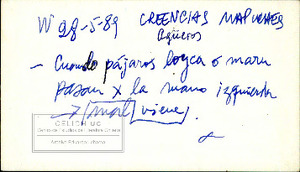 W 28-5-89 CREENCIAS MAPUCHES
Agüeros
— Cuando pájaros loyca o maru
pasan x la mano izquierda
→ mal viene
CELICH UC